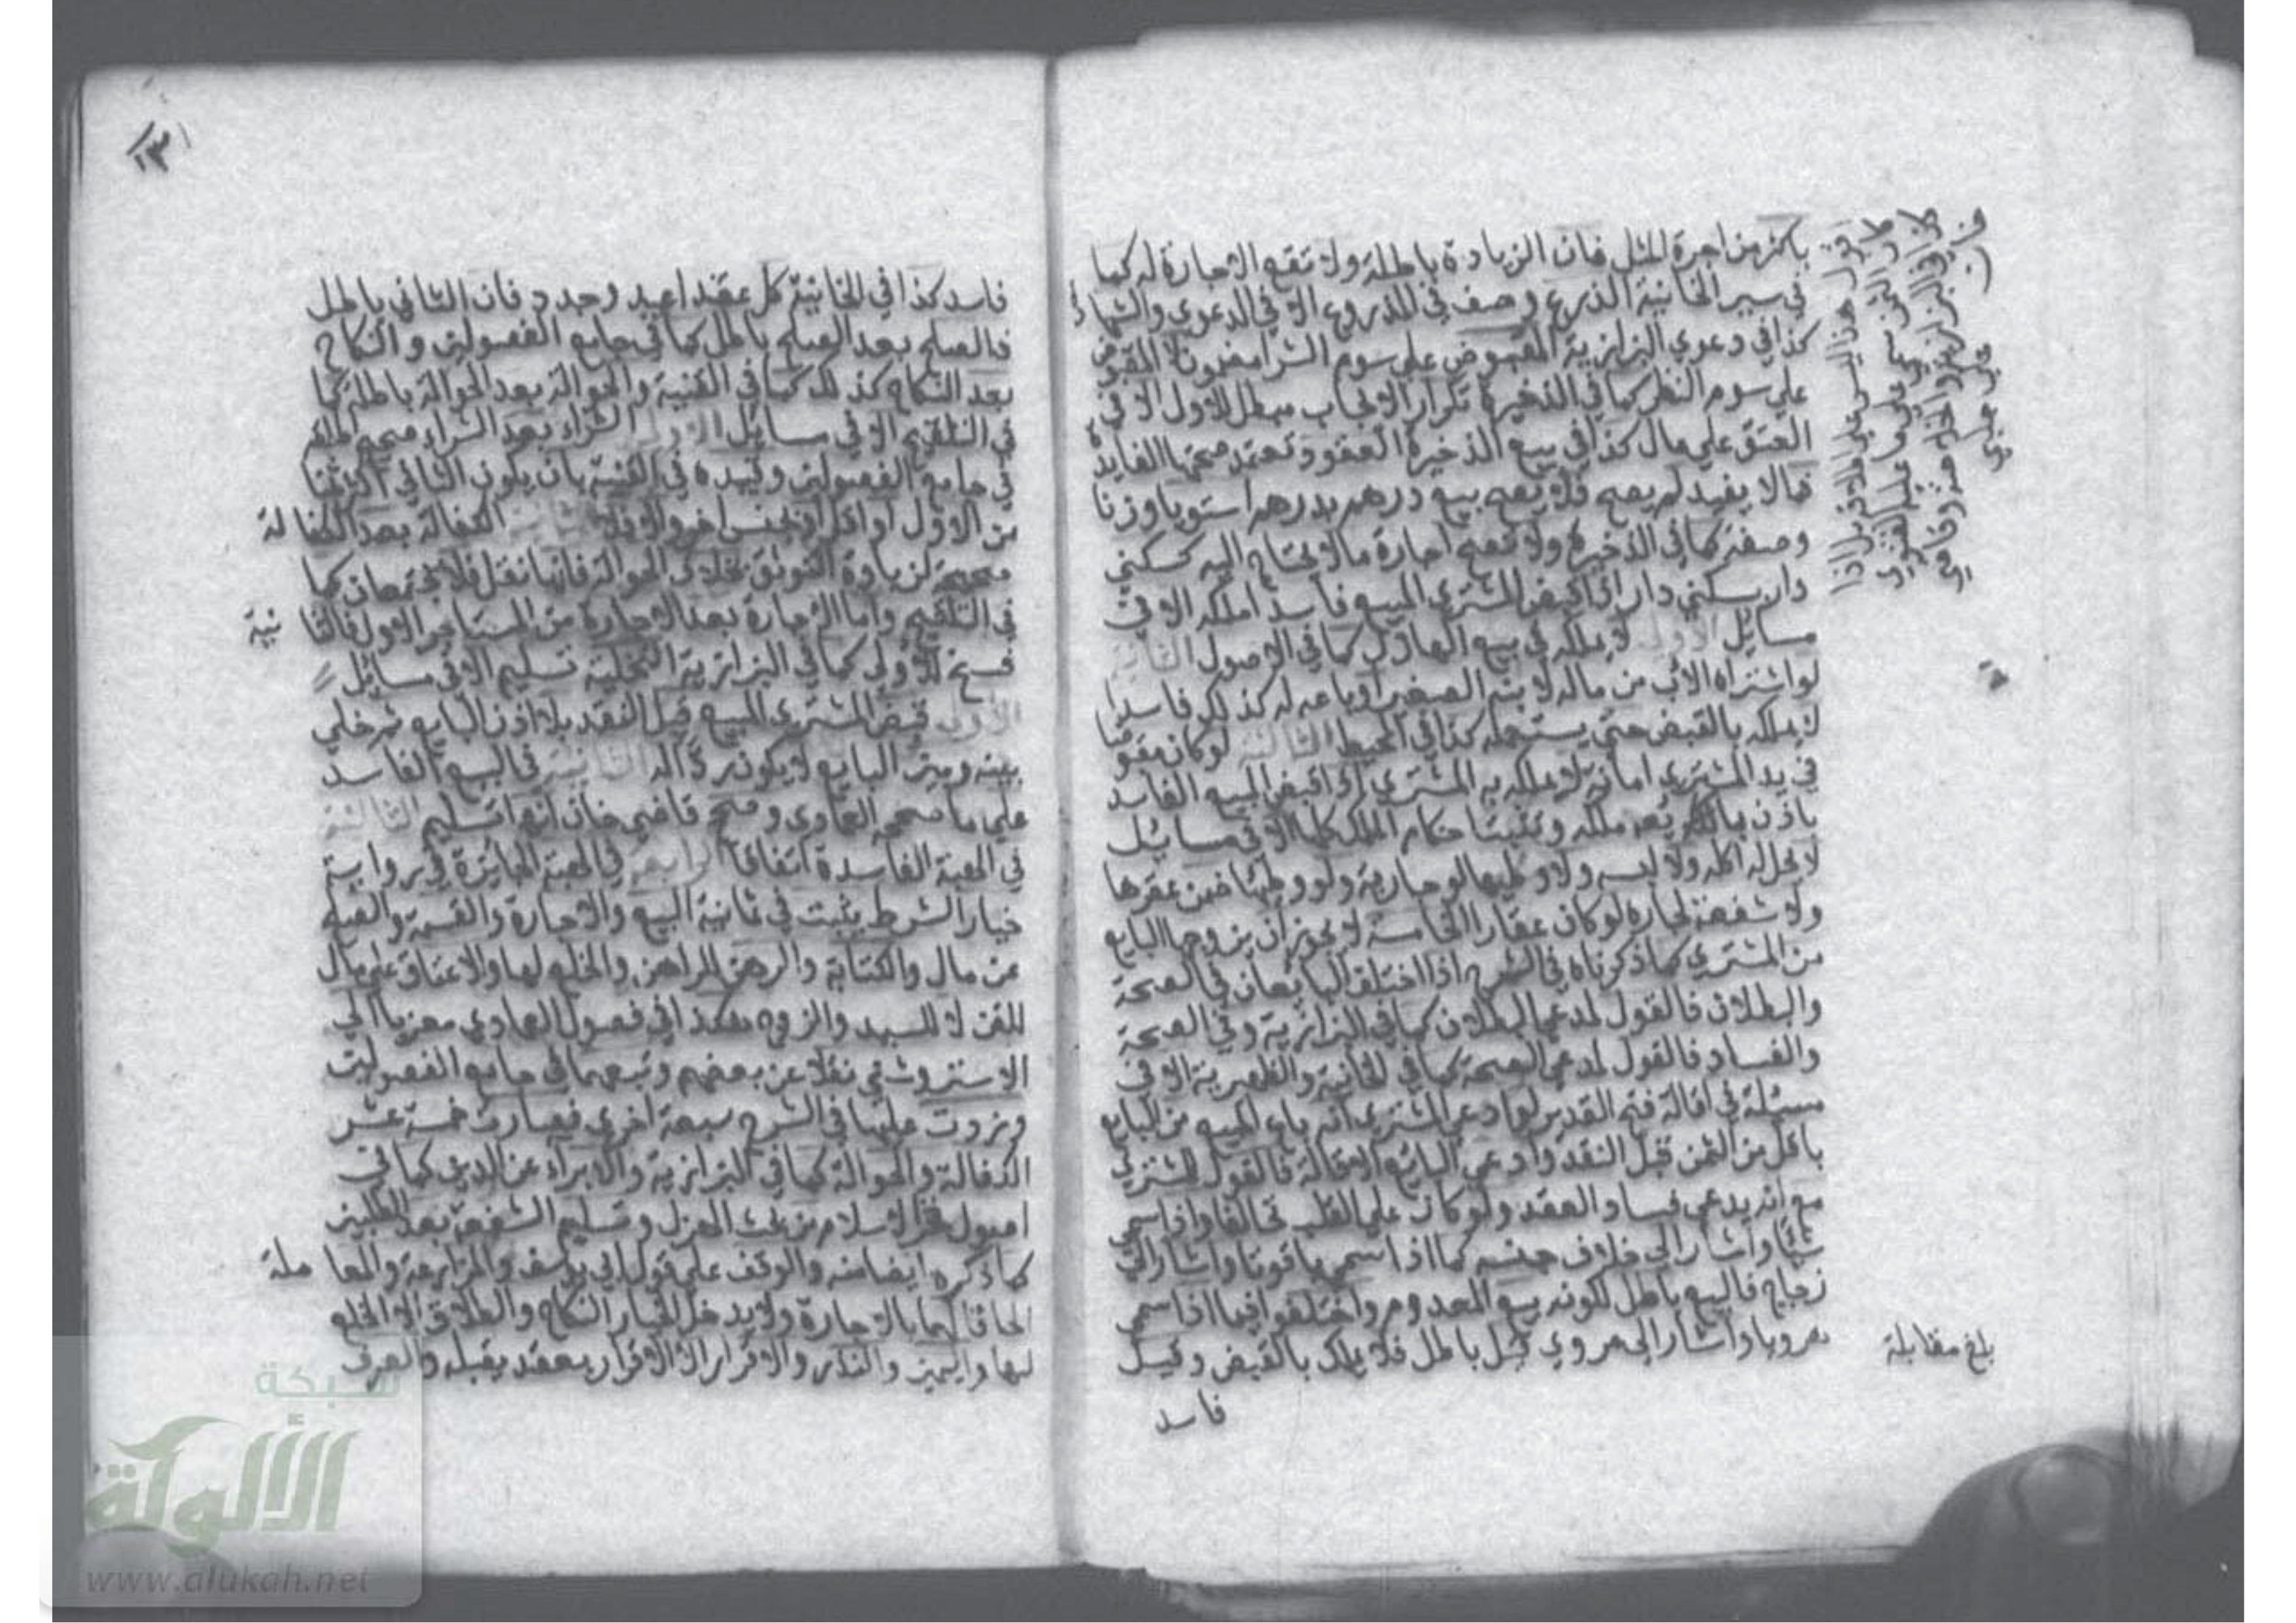 باكثر من اجرة المثل فان الزيادة باطلة ولا تقع الاجارة له كما
في سير الخانية الذرع وصف في المذروع الا في الدعوي والشهادة
كذا في دعوي البزازية المقبوض علي سوم الشرا مضمون لا المقبوض
علي سوم النظر كما في الذخيرة تكرار الايجاب مبطل للاول الا في
العتق علي مال كذا في بيع الذخيرة العقود تعتمد صحتها الفايدة
فما لا يفيد لم يصح فلا يصح بيع درهم بدرهم استويا وزنا
وصفة كما في الذخيرة ولا تصح اجارة ما لا يحتاج اليه كسكني
دار بسكني دار اذا قبض المشتري المبيع فاسدا ملكه الا في
مسايل الاولي لا يملكه في بيع الهازل كما في الاصول الثانية
لو اشتراه الاب من ماله لابنه الصغير او باعه له كذلك فاسدا
لا يملكه بالقبض حتي يستعمله كذا في المحيط الثالثة لو كان مقبوضا
في يد المشتري امانة لا يملكه به المشتري اذا قبض المبيع الفاسد
باذن بايعه ملكه وتثبت احكام الملك كلها الا في مسائل
لا يحل له اكله ولا لبسه ولا وطيها لو جارية ولو وطيها ضمن عقرها
ولا شفعة لجاره لو كان عقارا الخامسة لا يجوز ان يزوجها البايع
من المشتري كما ذكرناه في الشرح اذا اختلف البايعان في الصحة
والبطلان فالقول لمدعي البطلان كما في البزازية وفي الصحة
والفساد فالقول لمدعي الصحة كما في الخانية والظهيرية الا في
مسئلة في اقالة فتح القدير لو ادعي المشتري انه باع المبيع من البايع
باقل من الثمن قبل النقد وادعي البائع الاقالة فالقول للمشتري
مع انه يدعي فساد العقد ولو كان علي القلب تحالفا واذا سمي
شيئا واشار الي خلاف جنسه كما اذا سمي ياقوتا واشار الي
زجاج فالبيع باطل لكونه بيع المعدوم واختلفوا فيما اذا سمي
هرويا واشار الي مروي قيل باطل فلا يملك بالقبض وقيل
فاسد
بلغ مقابلة
١٣١
فاسد كذا في الخانية كل عقد اعيد وجدد فان الثاني باطل
فالصلح بعد الصلح باطل كما في جامع الفصولين والنكاح
بعد النكاح كذلك كما في القنية والحوالة بعد الحوالة باطلة كما
في التلقيح الا في مسايل الاولي الشراء بعد الشراء صحيح اطلقه
في جامع الفصولين وقيده في القنية بان يكون الثاني اكثر ثمنا
من الاول او اقل او بجنس اخر والا فلا الثانية الكفالة بعد الكفالة
صحيحة لزيادة التوثق بخلاف الحوالة فانها نقل فلا يجتمعان كما
في التلقيح واما الاجارة بعد الاجارة من المستاجر الاول فالثانية
فسخ للاولي كما في البزازية التخلية تسليم الا في مسايل
الاولي قبض المشتري المبيع قبل النقد بلا اذن البايع ثم خلي
بينه وبين البايع لا يكون ردا له الثانية في البيع الفاسد
علي ما صححه العمادي وصحح قاضي خان انها تسليم الثالثة
في الهبة الفاسدة اتفاقا الرابعة في الهبة الجايزة في رواية
خيار الشرط يثبت في ثمانية البيع والاجارة والقسمة والصلح
عن مال والكتابة والرهن للراهن والخلع لها والاعتاق علي مال
للقن لا للسيد والزوج هكذا في فصول العمادي معزيا الي
الاستروشني نقلا عن بعضهم وتبعهما في جامع الفصولين
وزدت عليها في الشرح سبعة اخري فصارت خمسة عشر
الكفالة والحوالة كما في البزازية والابراء عن الدين كما في
اصول فخر الاسلام من بحث الهزل وتسليم الشفعة بعد الطلبين
كما ذكره ايضا منه والوقف علي قول ابي يوسف والمزارعة والمعاملة
الحاقا لهما بالاجارة ولا يدخل الخيار النكاح والطلاق الا الخلع
لها واليمين والنذر والاقرار الا الاقرار بعقد يقبله والصرف
شبكة
الألوكة
www.alukah.net